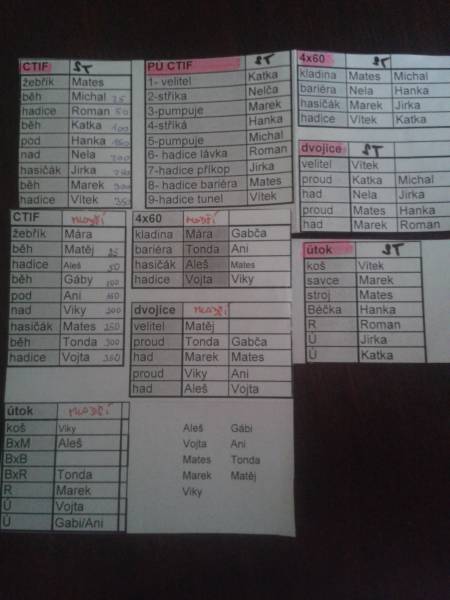 CTIF ST
žebřík Mates
běh Michal 25
hadice Roman 50
běh Katka 100
pod Hanka 150
nad Nela 200
hasičák Jirka
běh Marek 300
hadice Vítek 350
PÚ CTIF ST
1- velitel Katka
2-stříka Nelča
3-pumpuje Marek
4-stříká Hanka
5-pumpuje Michal
6- hadice lávka Roman
7-hadice příkop Jirka
8- hadice bariéra Mates
9-hadice tunel Vítek
4x60 ST
kladina Mates Michal
bariéra Nela Hanka
hasičák Marek Jirka
hadice Vítek Katka
dvojice ST
velitel Vítek
proud Katka Michal
had Nela Jirka
proud Mates Hanka
had Marek Roman
CTIF MLADŠÍ
žebřík Mára
běh Matěj 25
hadice Aleš 50
běh Gáby 100
pod Ani 150
nad Viky 200
hasičák Mates 250
běh Tonda 300
hadice Vojta 350
4x60 MLADŠÍ
kladina Mára Gabča
bariéra Tonda Ani
hasičák Aleš Mates
hadice Vojta Viky
dvojice MLADŠÍ
velitel Matěj
proud Tonda Gabča
had Marek Mates
proud Viky Ani
had Aleš Vojta
útok ST
koš Vítek
savce Marek
stroj Mates
Béčka Hanka
R Roman
Ú Jirka
Ú Katka
útok MLADŠÍ
koš Viky
BxM Aleš
BxB
BxR Tonda
R Marek
Ú Vojta
Ú Gabi/Ani
Aleš Gábi
Vojta Ani
Mates Tonda
Marek Matěj
Viky